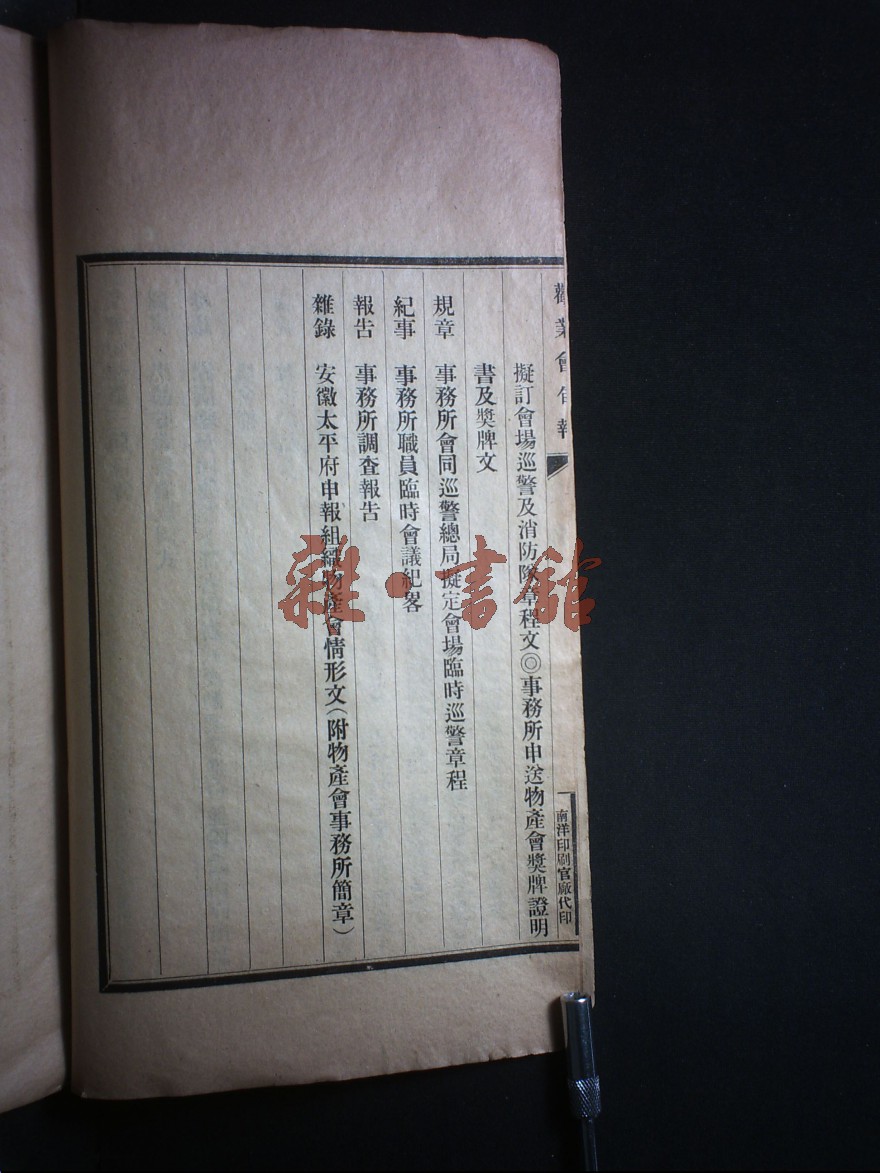 勸業會旬報
南洋印刷官廠代印
擬訂會場巡警及消防隊章程文◎事務所申送物產會獎牌證明
書及獎牌文
規章 事務所會同巡警總局擬定會場臨時巡警章程
紀事 事務所職員臨時會議紀畧
報告 事務所調查報告
雜錄 安徽太平府申報組織物產會情形文(附物產會事務所簡章)
雜·書館